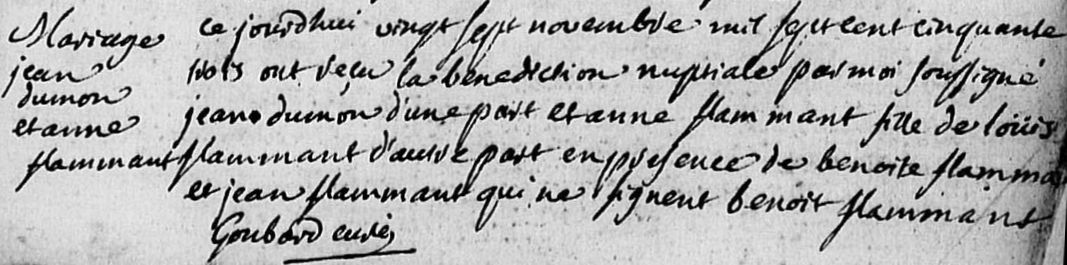 Mariage
jean
dumon
et anne
flammant
ce jourdhui vingt sept novembre mil sept cent cinquante
trois ont reçu la benediction nuptiale par moi soussigné
jean dumon d'une part et anne flammant fille de loüis
flammant d'autre part en presence de benoite flamma
et jean flammant qui ne signent benoit flammant
Goubard curé